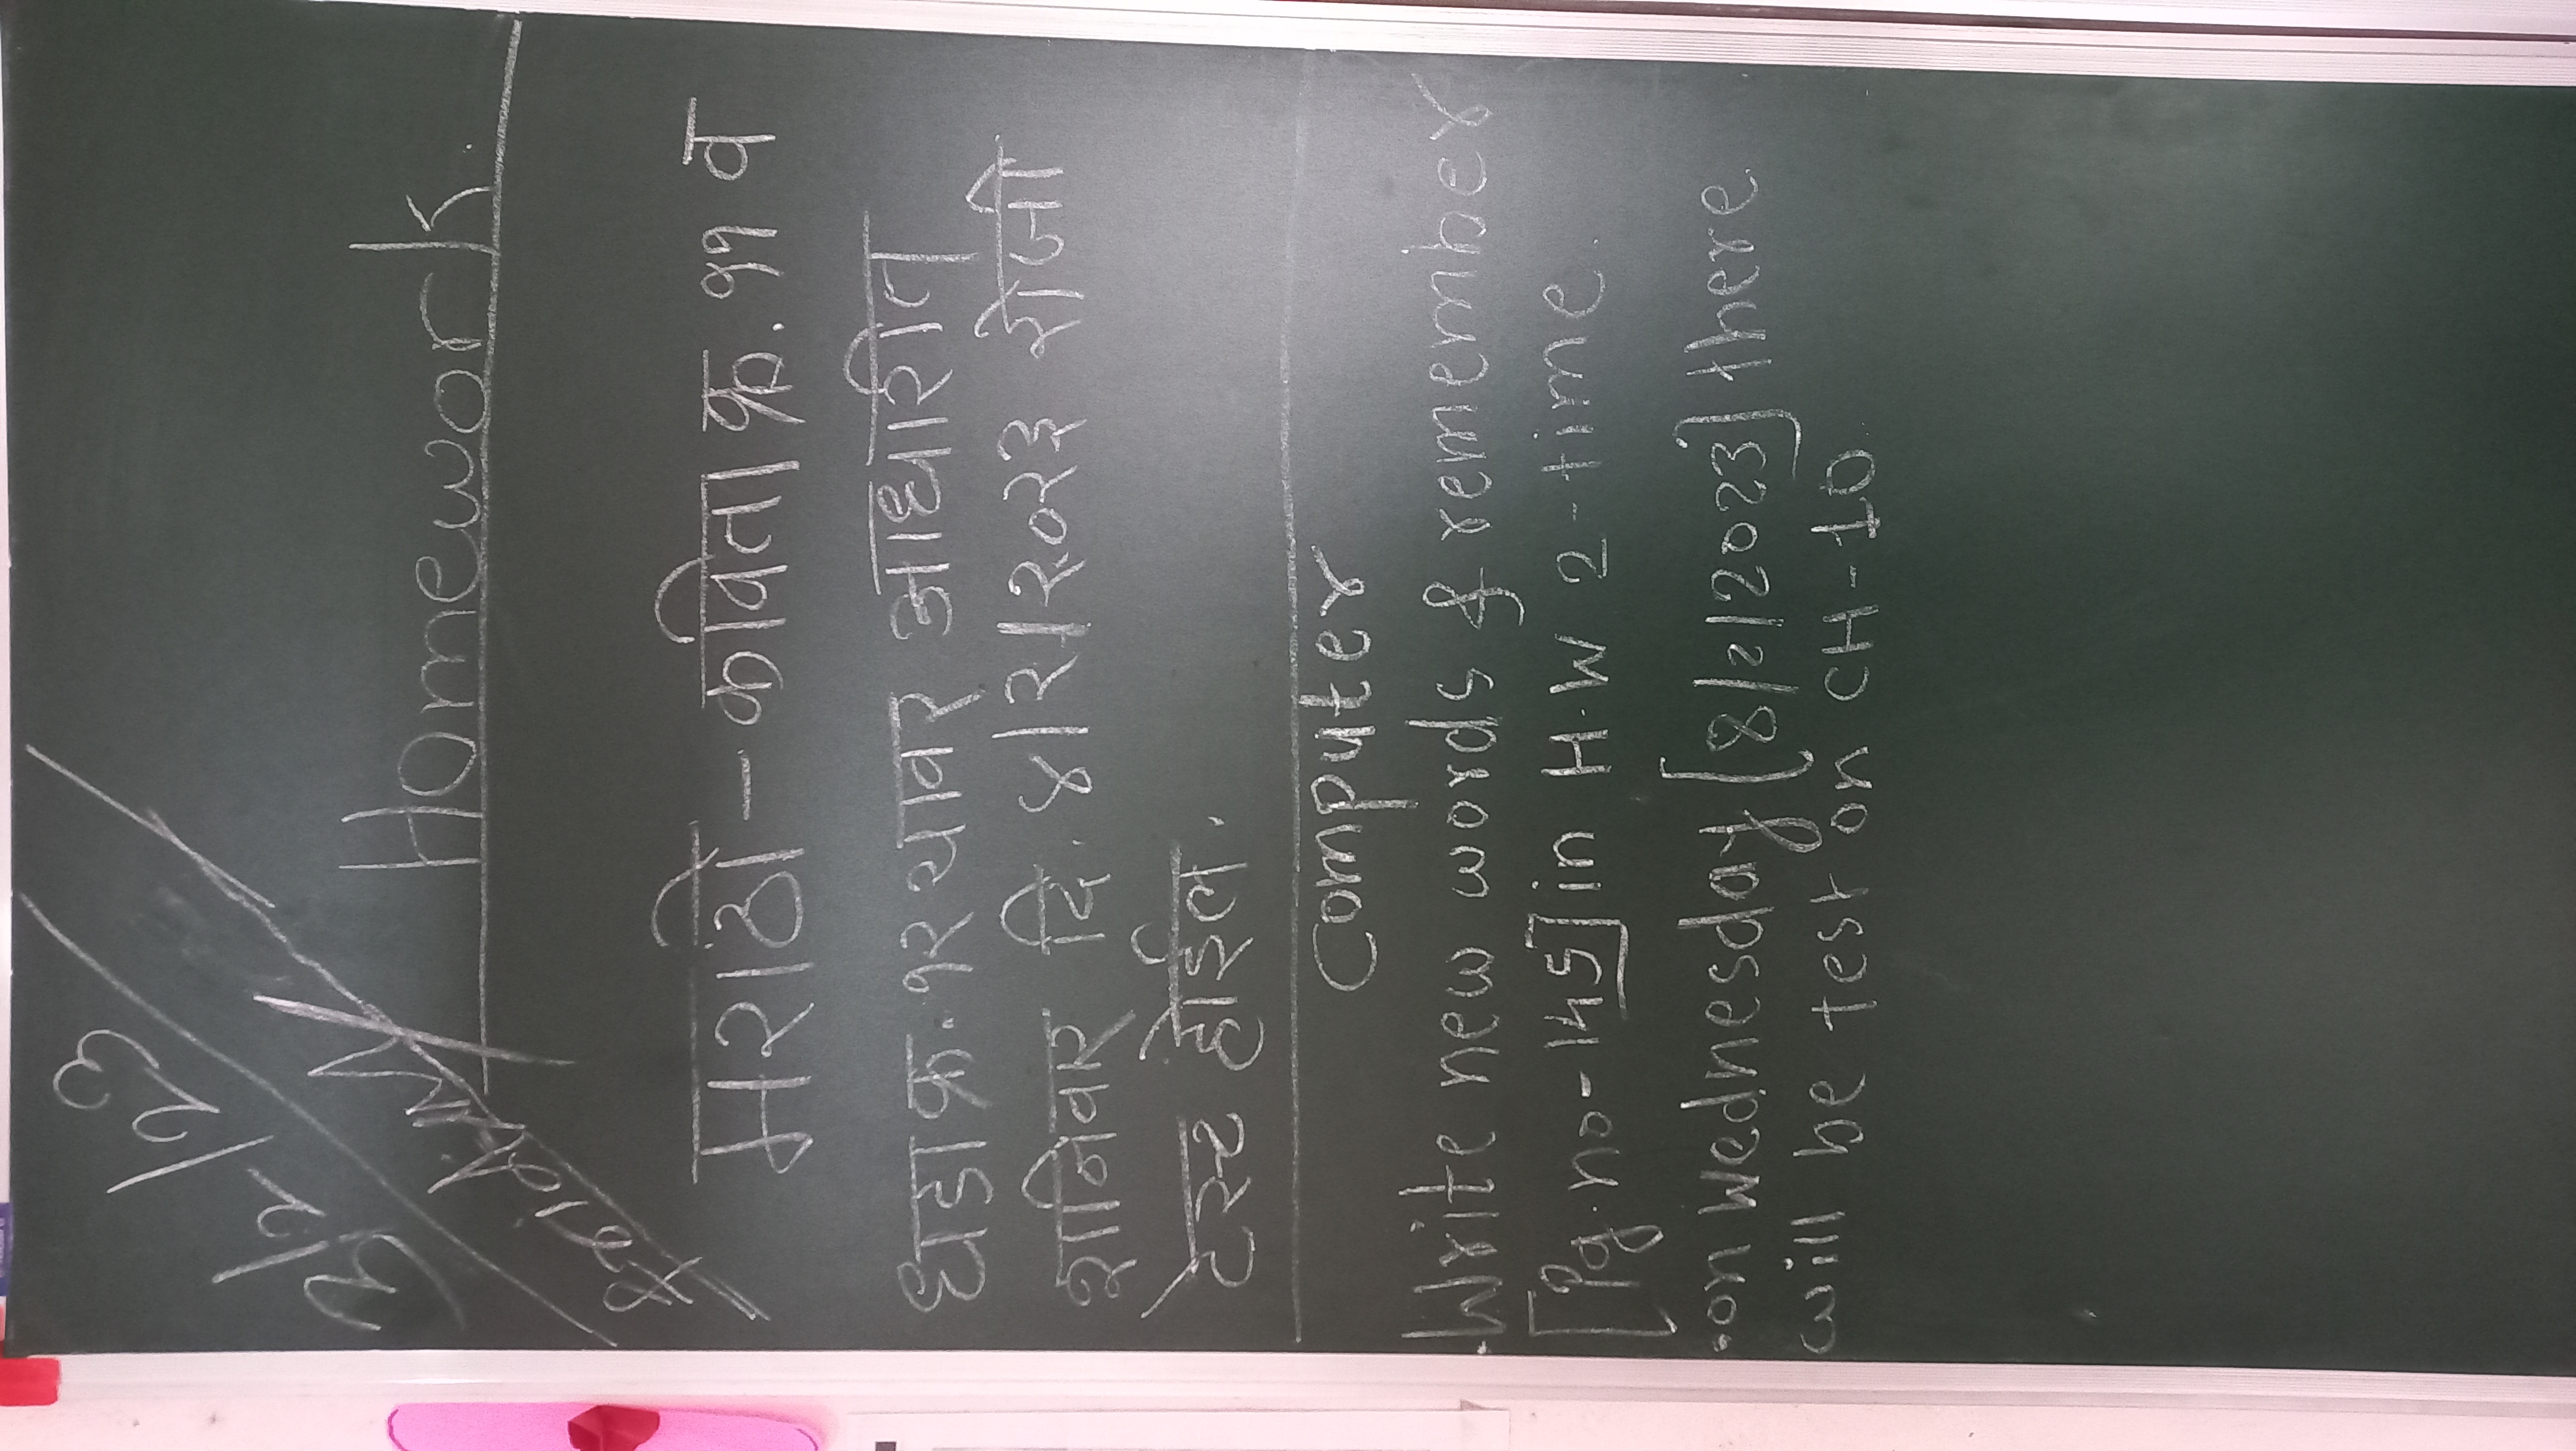 3/2/23
Homework.
मराठी - कविता क्र. ११ व
धडा क्र. १२ यावर आधारीत
शनिवार दि. ४।२।२०२३ रोजी
टेस्ट होईल.
Computer
.Write new words & remember
[Pg.no-145] in H.W 2-time.
.on Wednesday [8/2/2023] there
will be test on CH-10